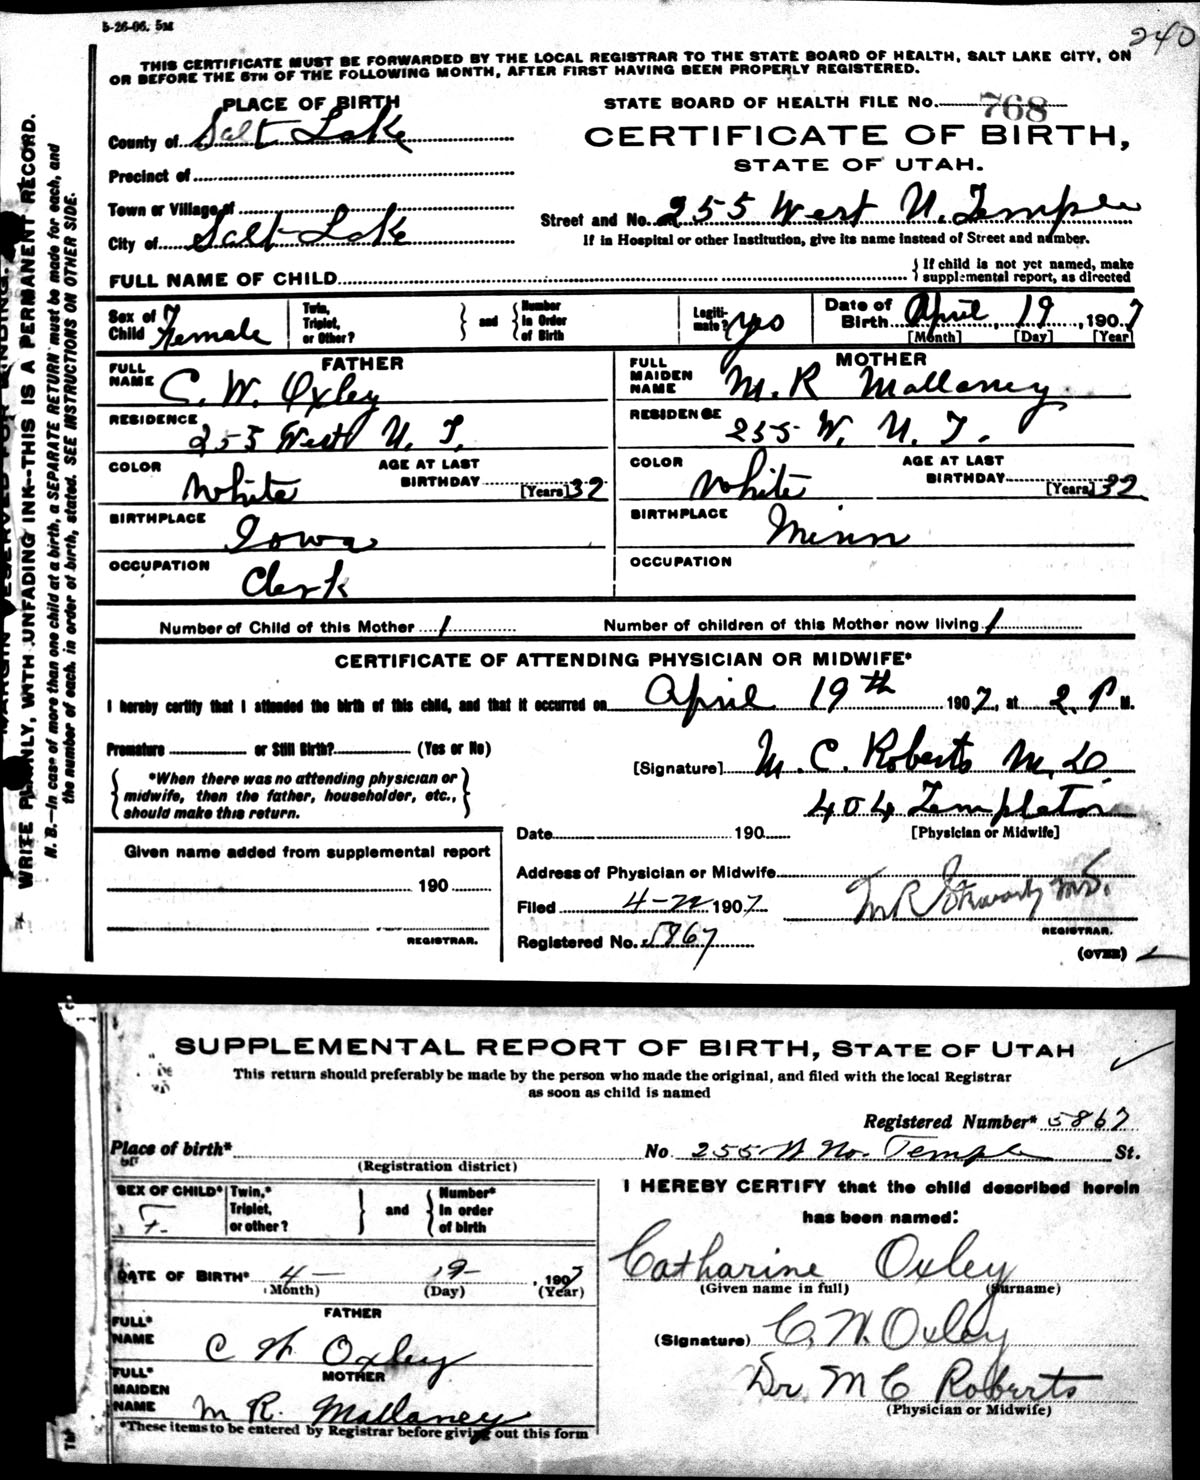 5-26-06. 5M
240
THIS CERTIFICATE MUST BE FORWARDED BY THE LOCAL REGISTRAR TO THE STATE BOARD OF HEALTH, SALT LAKE CITY, ON
OR BEFORE THE 5TH OF THE FOLLOWING MONTH, AFTER FIRST HAVING BEEN PROPERLY REGISTERED.
PLACE OF BIRTH
STATE BOARD OF HEALTH FILE No. 768
County of Salt Lake
CERTIFICATE OF BIRTH,
STATE OF UTAH.
Precinct of
Town or Village of
Street and No. 255 West N. Temple
City of Salt Lake
If in Hospital or other Institution, give its name instead of Street and number.
FULL NAME OF CHILD
If child is not yet named, make
supplemental report, as directed
Sex of Child Female
Twin, Triplet, or Other?
and
Number in Order of Birth
Legiti-mate? yes
Date of Birth April, 19, 1907
[Month] [Day] [Year]
FATHER
FULL NAME C. W. Oxley
RESIDENCE 255 West N. T.
COLOR White
AGE AT LAST BIRTHDAY [Years] 32
BIRTHPLACE Iowa
OCCUPATION Clerk
MOTHER
FULL MAIDEN NAME M. R Mallaney
RESIDENCE 255 W. N. T.
COLOR White
AGE AT LAST BIRTHDAY [Years] 32
BIRTHPLACE Minn
OCCUPATION
Number of Child of this Mother 1
Number of children of this Mother now living 1
CERTIFICATE OF ATTENDING PHYSICIAN OR MIDWIFE*
I hereby certify that I attended the birth of this child, and that it occurred on April 19th 1907, at 2 P M.
Premature or Still Birth? (Yes or No)
*When there was no attending physician or
midwife, then the father, householder, etc.,
should make this return.
[Signature] M. C. Roberts M. D.
404 Templeton
[Physician or Midwife]
Date 190
Given name added from supplemental report
190
REGISTRAR.
Address of Physician or Midwife
Filed 4-22 1907
M R Stewart M.D.
REGISTRAR.
Registered No. 5867
(OVER)
MARGIN RESERVED FOR BINDING.
WRITE PLAINLY, WITH UNFADING INK--THIS IS A PERMANENT RECORD.
N. B.—In case of more than one child at a birth, a SEPARATE RETURN must be made for each, and
the number of each, in order of birth, stated. SEE INSTRUCTIONS ON OTHER SIDE.
SUPPLEMENTAL REPORT OF BIRTH, STATE OF UTAH
This return should preferably be made by the person who made the original, and filed with the local Registrar
as soon as child is named
Registered Number* 5867
Place of birth*
(Registration district)
No 255 W No. Temple St.
SEX OF CHILD* F.
Twin,* Triplet, or other?
and
Number* In order of birth
DATE OF BIRTH* 4 19, 1907
(Month) (Day) (Year)
FATHER
FULL* NAME C W Oxley
MOTHER
FULL* MAIDEN NAME M R. Mallaney
*These items to be entered by Registrar before giving out this form
I HEREBY CERTIFY that the child described herein
has been named:
Catharine Oxley
(Given name in full) (Surname)
(Signature) C. W. Oxley
Dr M C Roberts
(Physician or Midwife)